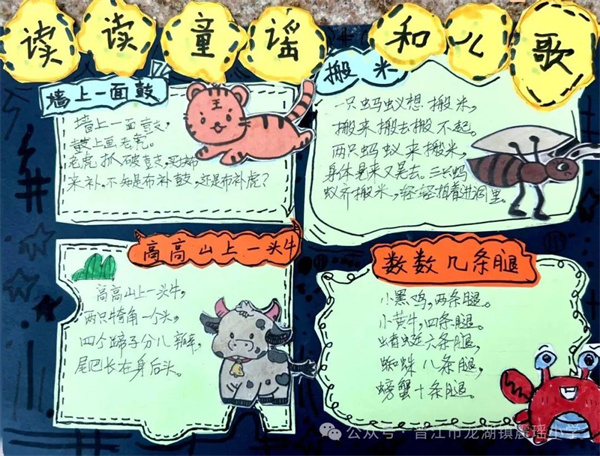 读读童谣和儿歌
墙上一面鼓
墙上一面鼓,
鼓上画老虎。
老虎抓破鼓,买块布
来补。不知是布补鼓,还是布补虎?
搬米
一只蚂蚁想搬米,
搬来搬去搬不起。
两只蚂蚁来搬米,
身体晃来又晃去。三只蚂
蚁齐搬米,轻轻抬着进洞里。
高高山上一头牛
高高山上一头牛,
两只犄角一个头,
四个蹄子分八瓣,
尾巴长在身后头。
数数几条腿
小黑鸡,两条腿。
小黄牛,四条腿。
六条腿。
蜘蛛八条腿,
螃蟹十条腿。
公众号·晋江市龙湖镇瑶小学